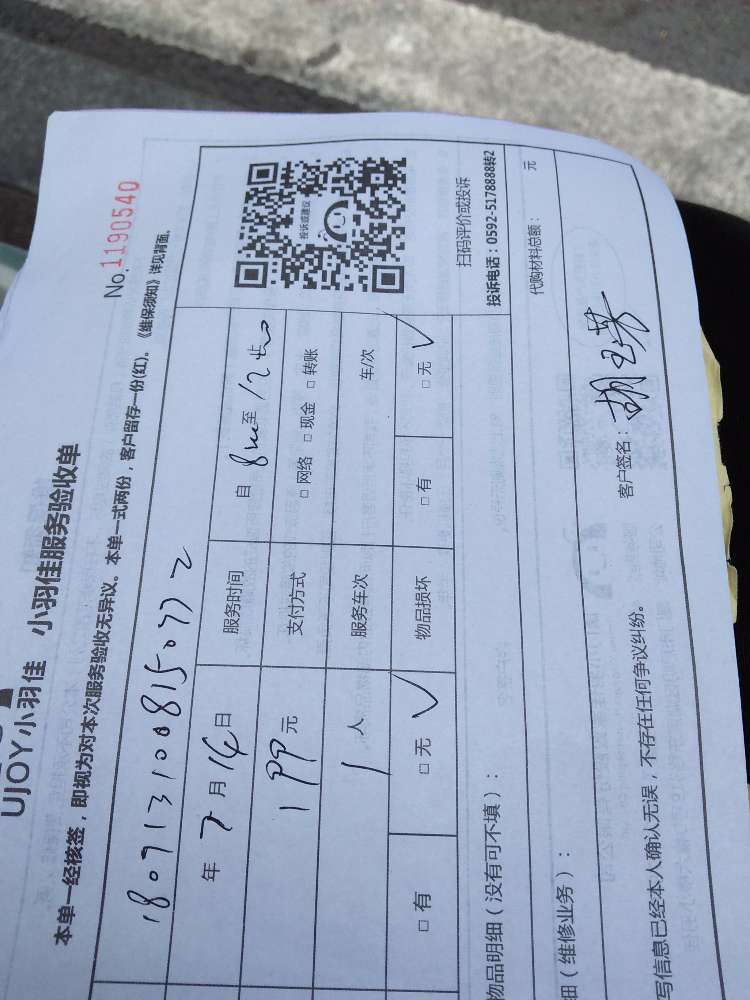 UJOY小羽佳 小羽佳服务验收单
No.1190540
本单一经核签，即视为对本次服务验收无异议。本单一式两份，客户留存一份(红)。《维保须知》详见背面。
1807131008150772
年 7 月 14 日 服务时间 自 8 至 12
199 元 支付方式 □ 网络 □ 现金 □ 转账
1 人 服务车次 车/次
□ 有 □ 无 √ 物品损坏 □ 有 □ 无 √
投诉或建议
扫码评价或投诉
投诉电话：0592-5178888转2
物品明细（没有可不填）：
细（维修业务）： 代购材料总额： 元
写信息已经本人确认无误，不存在任何争议纠纷。 客户签名：胡玉英